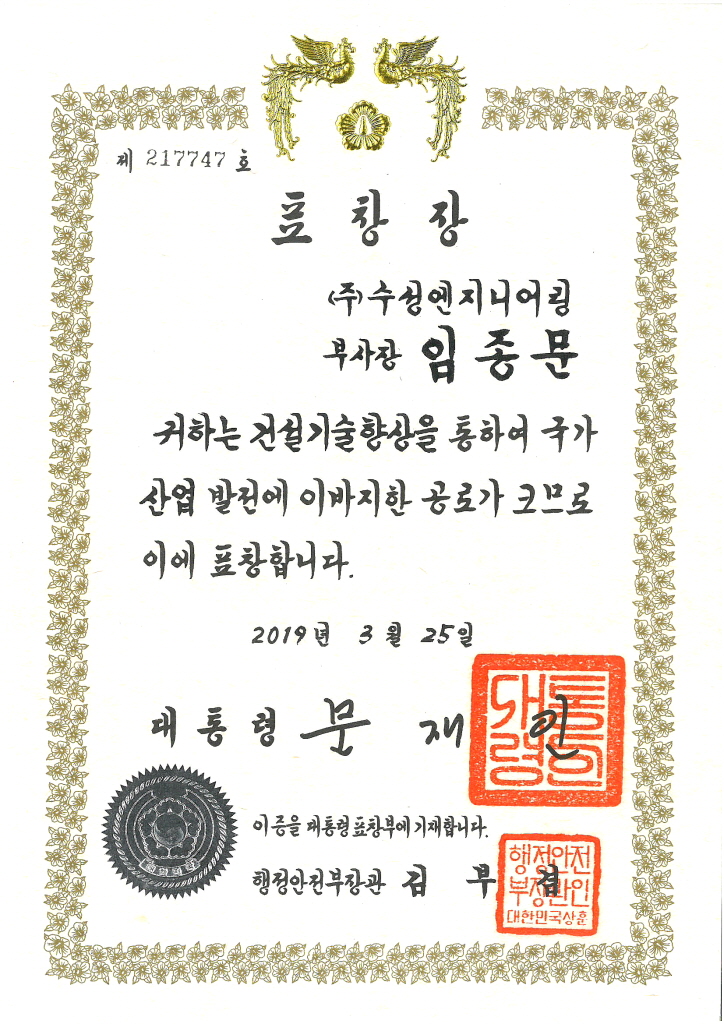 제 217747 호
표 창 장
(주)수성엔지니어링
부사장 임 종 문
귀하는 건설기술향상을 통하여 국가
산업 발전에 이바지한 공로가 크므로
이에 표창합니다.
2019년 3월 25일
대 통 령 문 재 인
대통
령의
인
이 증을 대통령표창부에 기재합니다.
행정안전부장관 김 부 겸
행정안전
부장관인
대한민국상훈